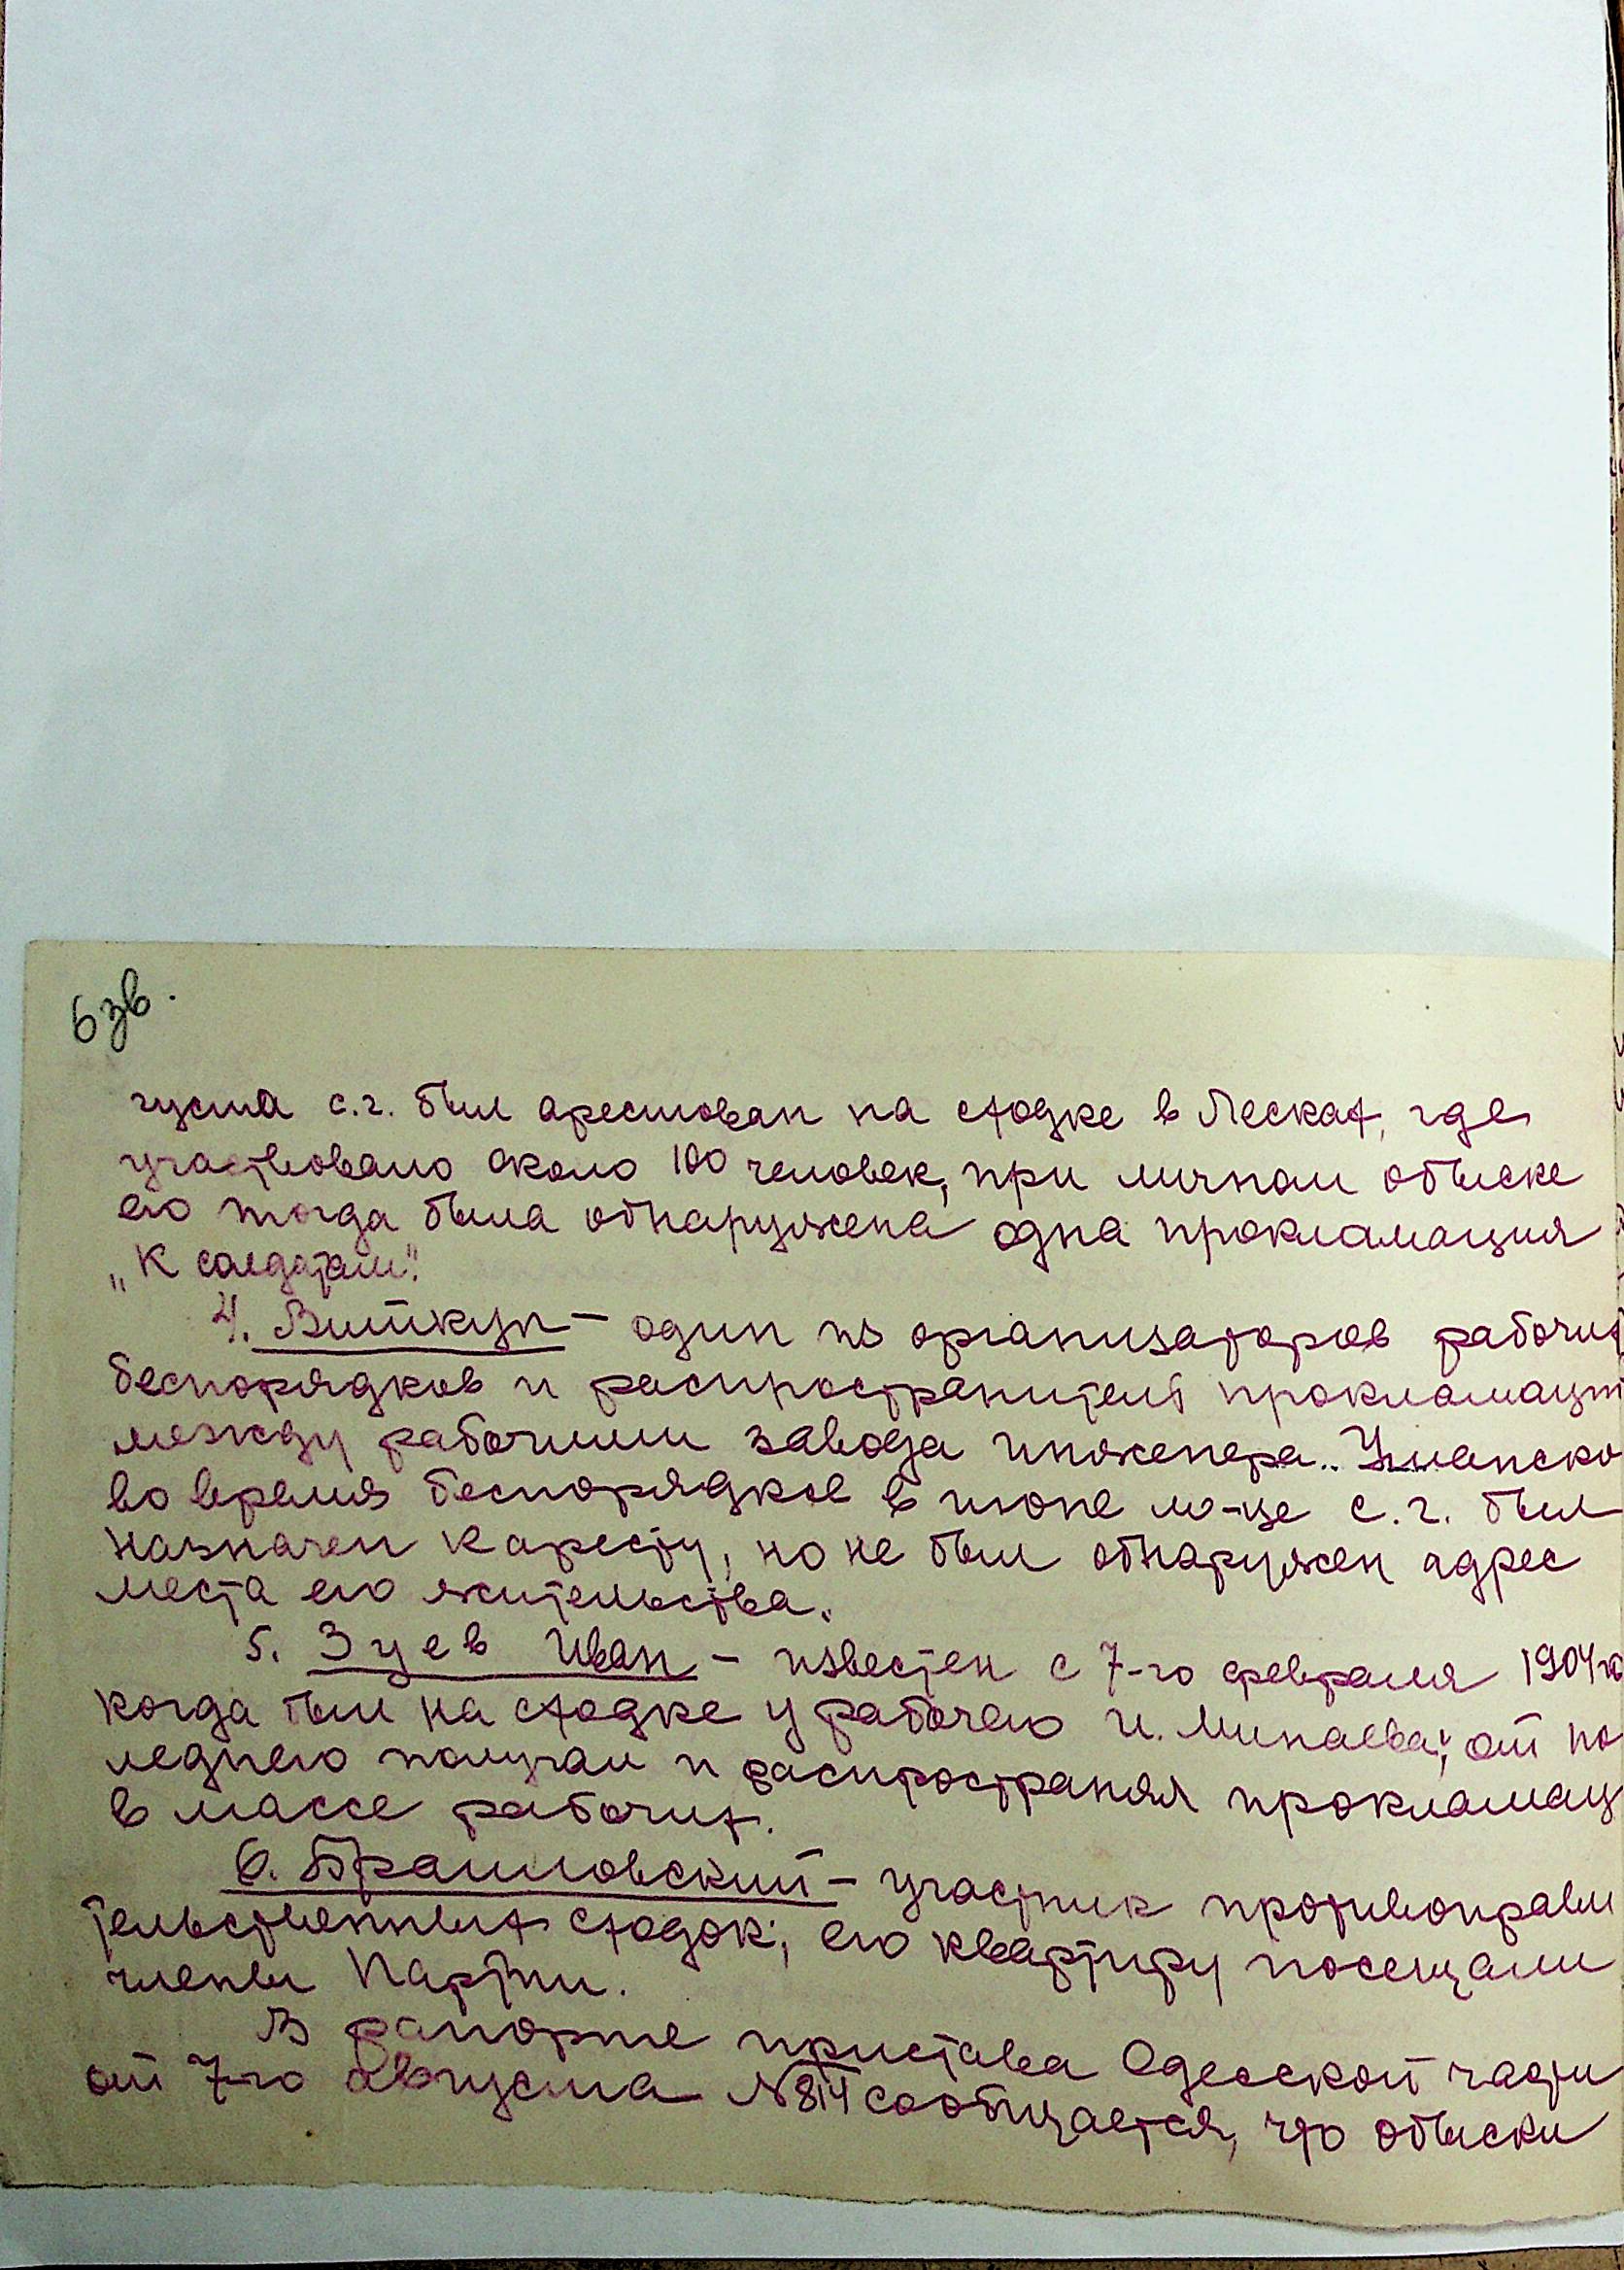 6 зв.
густа с.г. был арестован на сходке в Песках, где
участвовало около 100 человек, при личном обыске
его тогда была обнаружена одна прокламация
„К солдатам".
4. Виткуп – один из организаторов рабочих
беспорядков и распространитель прокламаци
между рабочими завода инженера Уманско
во время беспорядков в июне м-це с.г. был
назначен к аресту, но не был обнаружен адрес
места его жительства.
5. Зуев Иван – известен с 7-го февраля 1904 го
когда был на сходке у рабочего И. Минаева; от по
леднего получал и распространял прокламац
в массе рабочих.
6. Браиловский – участник противоправи
тельственных сходок; его квартиру посещали
члены Партии.
В рапорте пристава Одесской части
от 7-го августа № 814 сообщается, что обыски